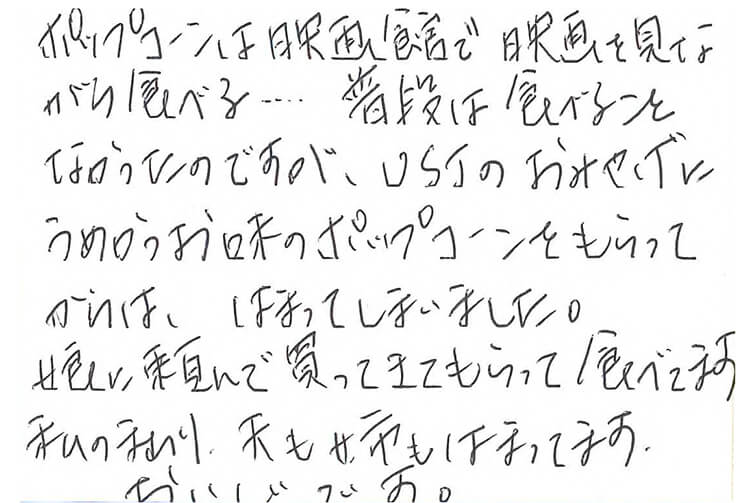 ポップコーンは映画館で 映画を見な
がら食べる…… 普段は食べること
なかったのですが、USJのおみやげに
うめかつお味のポップコーンをもらって
からは、 はまってしまいました。
娘に頼んで買ってきてもらって食べてます
私のまわり、夫も姉もはまってます.
おいしいです。